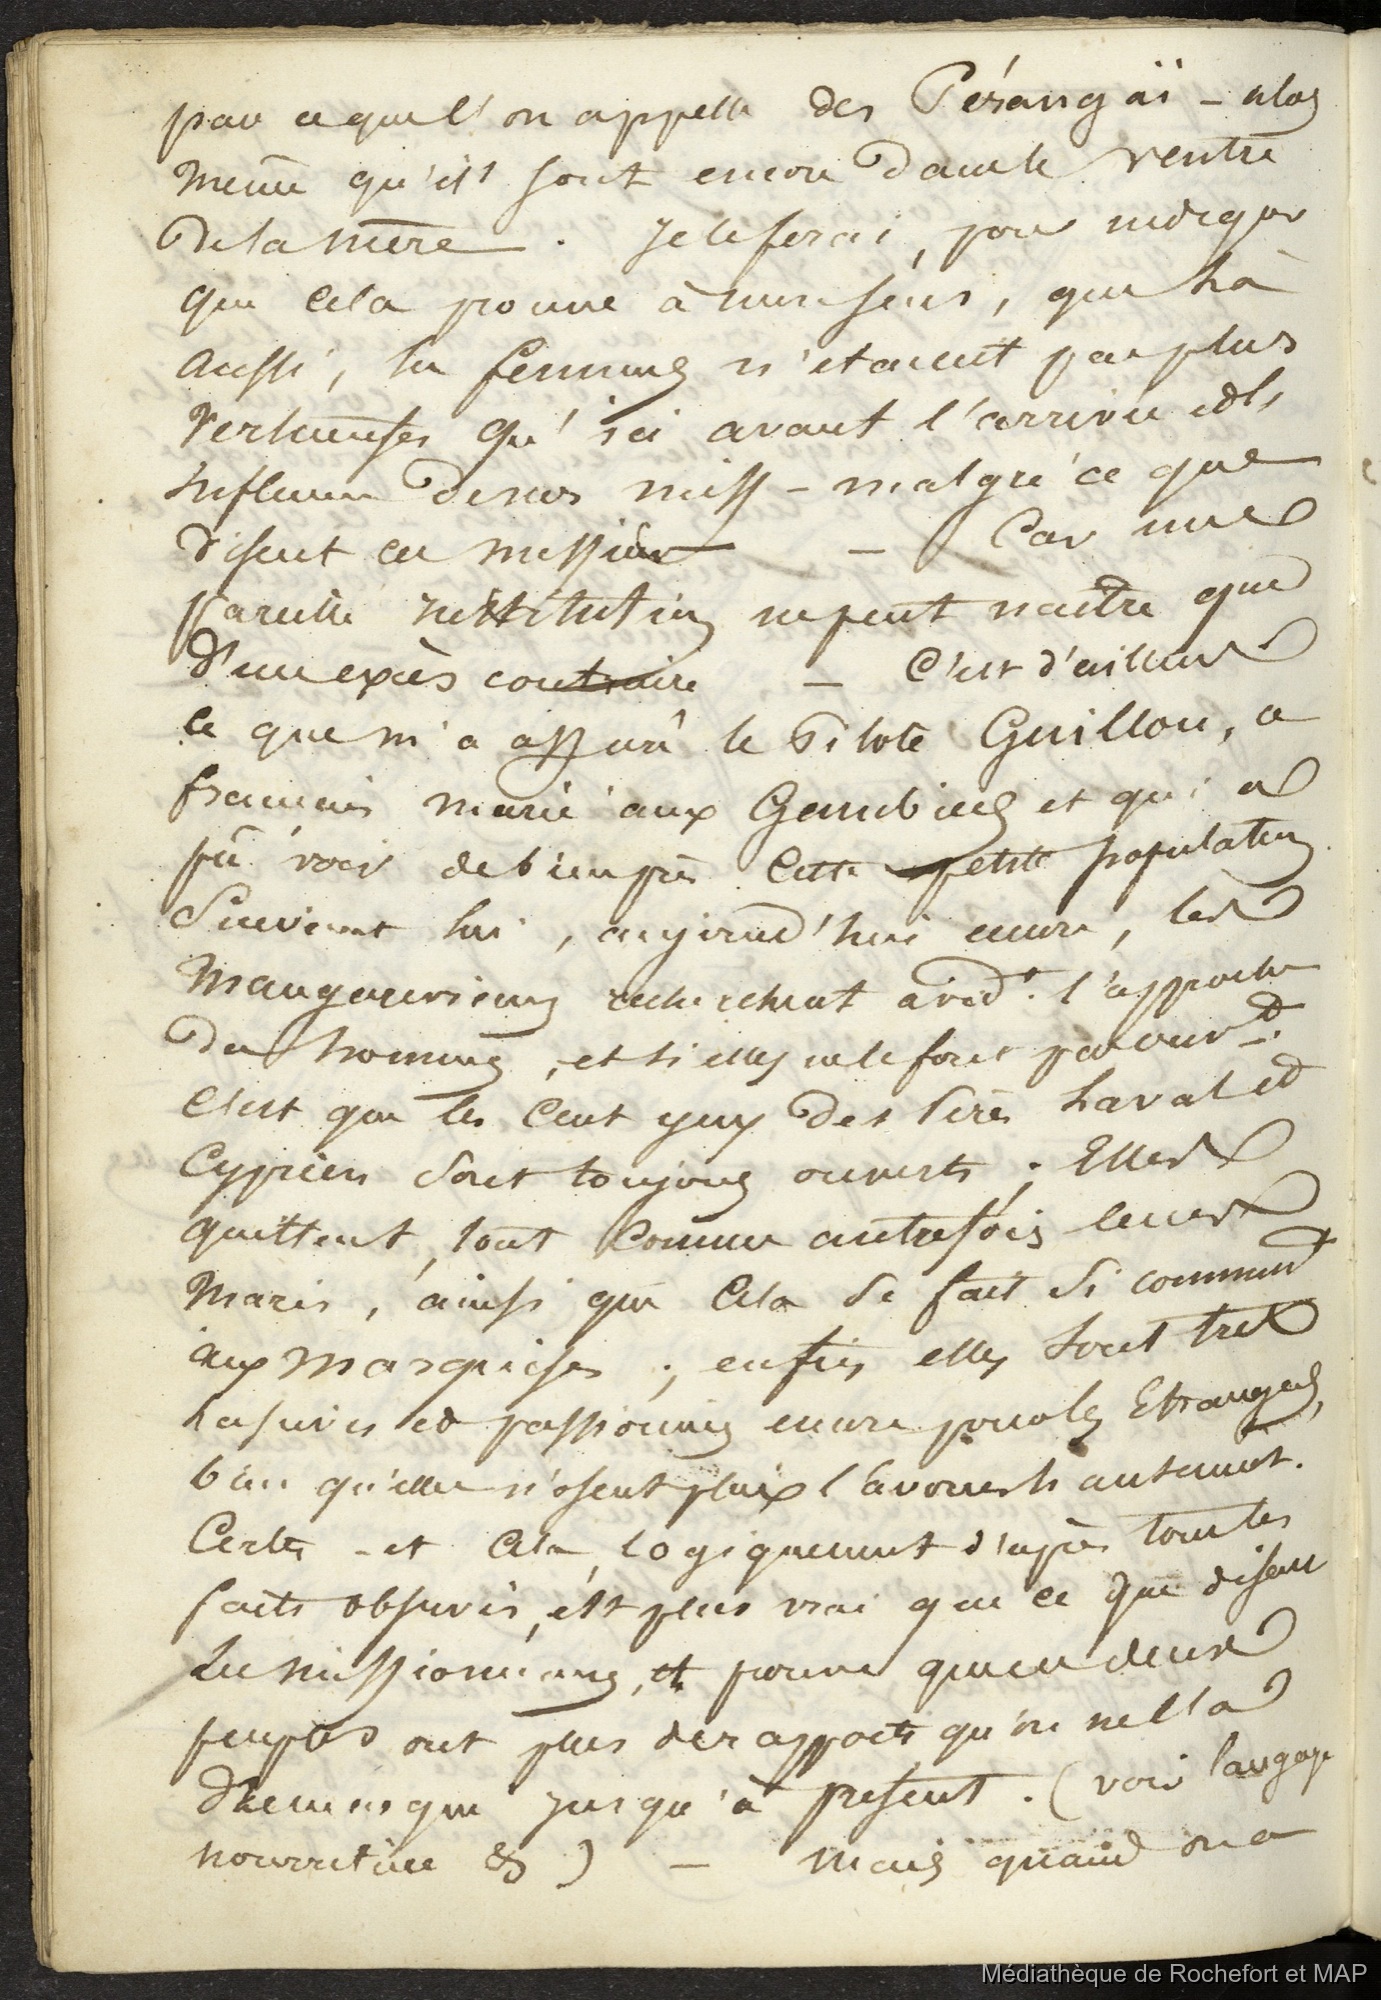 par ce que l'on appelle des Pérangäi - alors
même qu'ils sont encore dans le ventre
de la mère. Je le ferai, pour indiquer
que cela prouve à mon sens, que là
aussi, les femmes n'etaient pas plus
vertueuses qu'ici avant l'arrivée et l'
influence de nos miss - malgré ce que
disent ces messieurs - Car une
pareille institution ne peut naitre que
d'un excès contraire - C'est d'ailleurs
ce que m'a assuré le Pilote Guillou, ce
francais marié aux Gambiers et qui a
pû voir de bien près cette petite population
Suivant lui, aujourd'hui encore, les
Mangareviennes recherchent avidt. l'approche
des hommes, et si elles ne le font pas ouvt.
c'est que les cent yeux des Pères Laval et
Cyprien sont toujours ouverts; Elles
quittent, tout comme autrefois leurs
maris, ainsi que cela se fait si communt
aux Marquises; enfin elles sont tres
lascives et passionnées encore pour les Etrangers,
bien qu'elles n'osent plus l'avouer hautement.
Certes - et cela, logiquement d'après tous les
faits observés, est plus vrai que ce que disent
les missionnaires, et prouve que ces deux
peuples ont plus de rapports qu'on ne l'a
dit jusqu'à présent. (voir langage
nourriture &) - Mais quand on a
Médiathèque de Rochefort et MAP